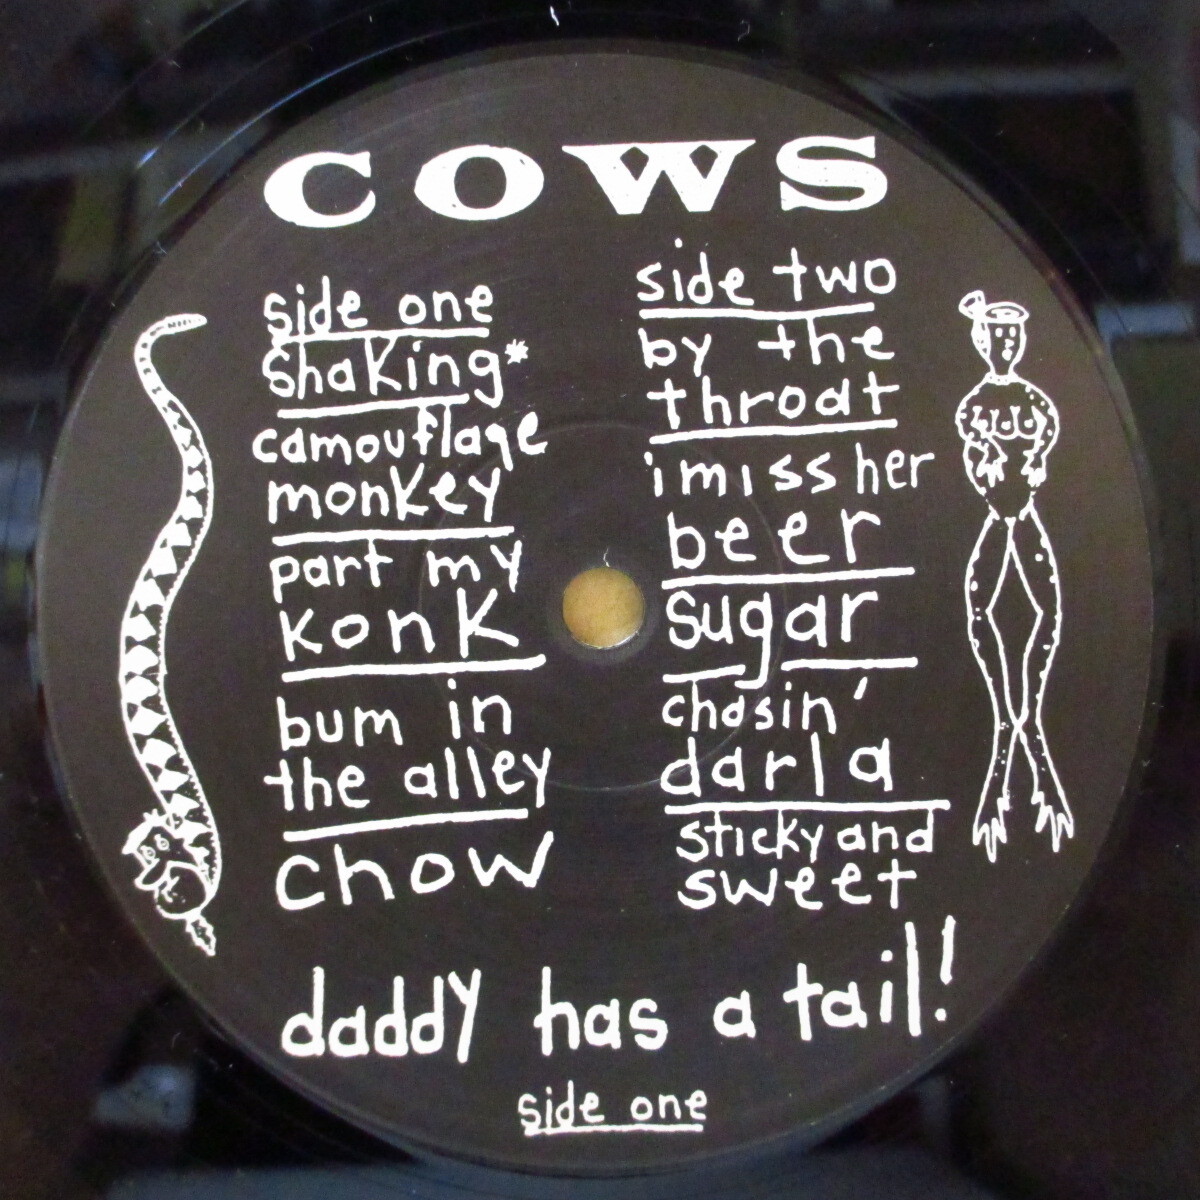 COWS
side one
shaking*
camouflage
monkey
part my
konk
bum in
the alley
chow
side two
by the
throat
i miss her
beer
sugar
chasin'
darla
sticky and
sweet
daddy has a tail!
side one